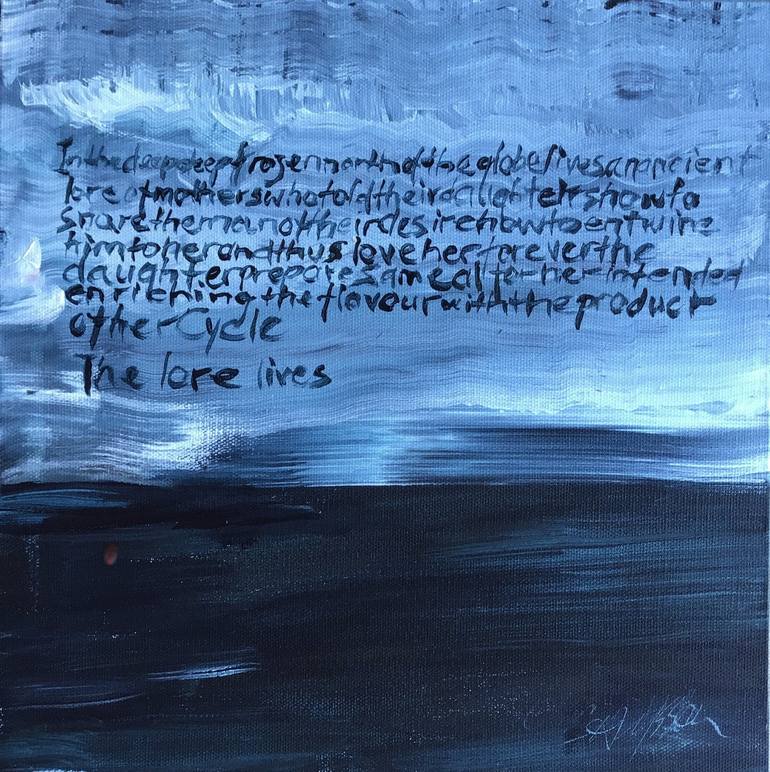 Inthedeepdeepfrozennorthoftheglobelivesanancient
loreofmotherswhotoldtheirdaughtershowto
snarethemanoftheirdesirehowtoentwine
himtoherandthusloveherforeverthe
daughterpreparesamealforherintended
enrichingtheflavourwiththeproduct
ofherCycle
The lore lives